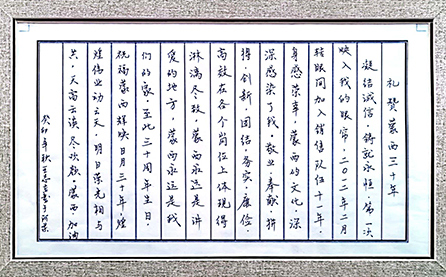 礼赞蒙西三十年
凝结诚信，铸就永恒，第一次
映入我的眼帘。二〇一二年二月
转眼间加入销售队伍十一年，
身感荣幸，蒙西的文化，深
深感染了我，敬业、奉献、拼
搏、创新、团结、务实、廉俭、
高效在各个岗位上体现得
淋漓尽致，蒙西永远是讲
爱的地方，蒙西永远是我
们的家，至此三十周年生日，
祝福蒙西辉映日月三十年，煌
煌伟业动云天，明日荣光相与
共，天高云淡尽欢欣，蒙西，加油
癸卯年秋王志